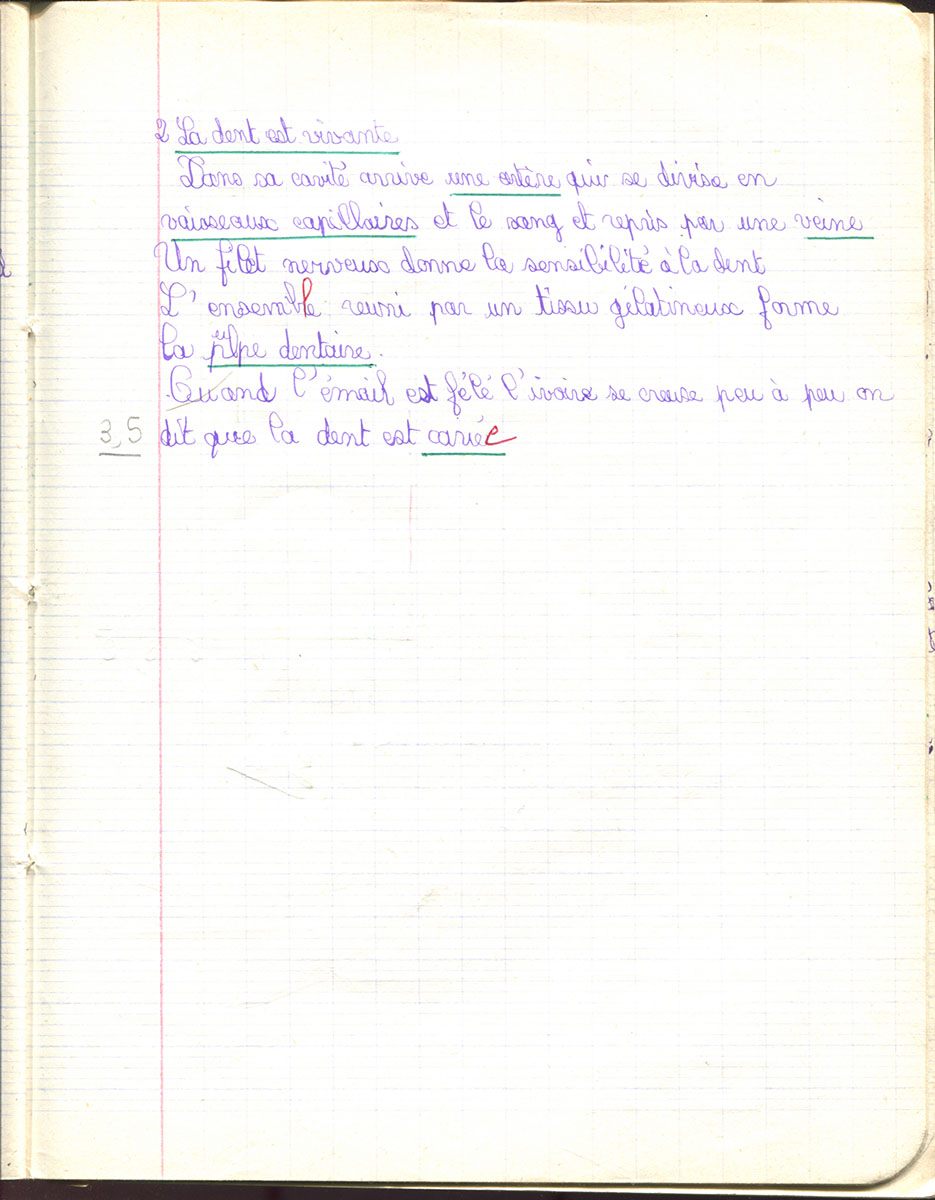 2 La dent est vivante
Dans sa cavité arrive une artère qui se divise en
vaisseaux capillaires et le sang et repris par une veine
Un filet nerveux donne la sensibilité à la dent
L'ensemble reuni par un tissu gélatineux forme
la pulpe dentaire.
Quand l'émail est félé l'ivoire se creuse peu à peu on
3,5 dit que la dent est cariée